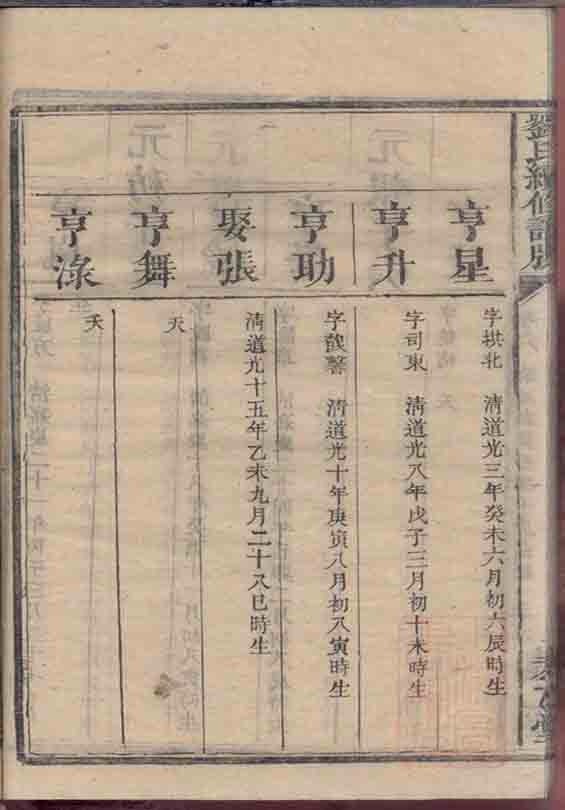 劉氏續修譜牒
亨星
字拱北 清道光三年癸未六月初六辰時生
亨升
字司東 清道光八年戊子三月初十未時生
亨助
馨 清道光十年庚寅八月初八寅時生
娶張
清道光十五年乙未九月二十八巳時生
亨舞
夭
亨淥
夭